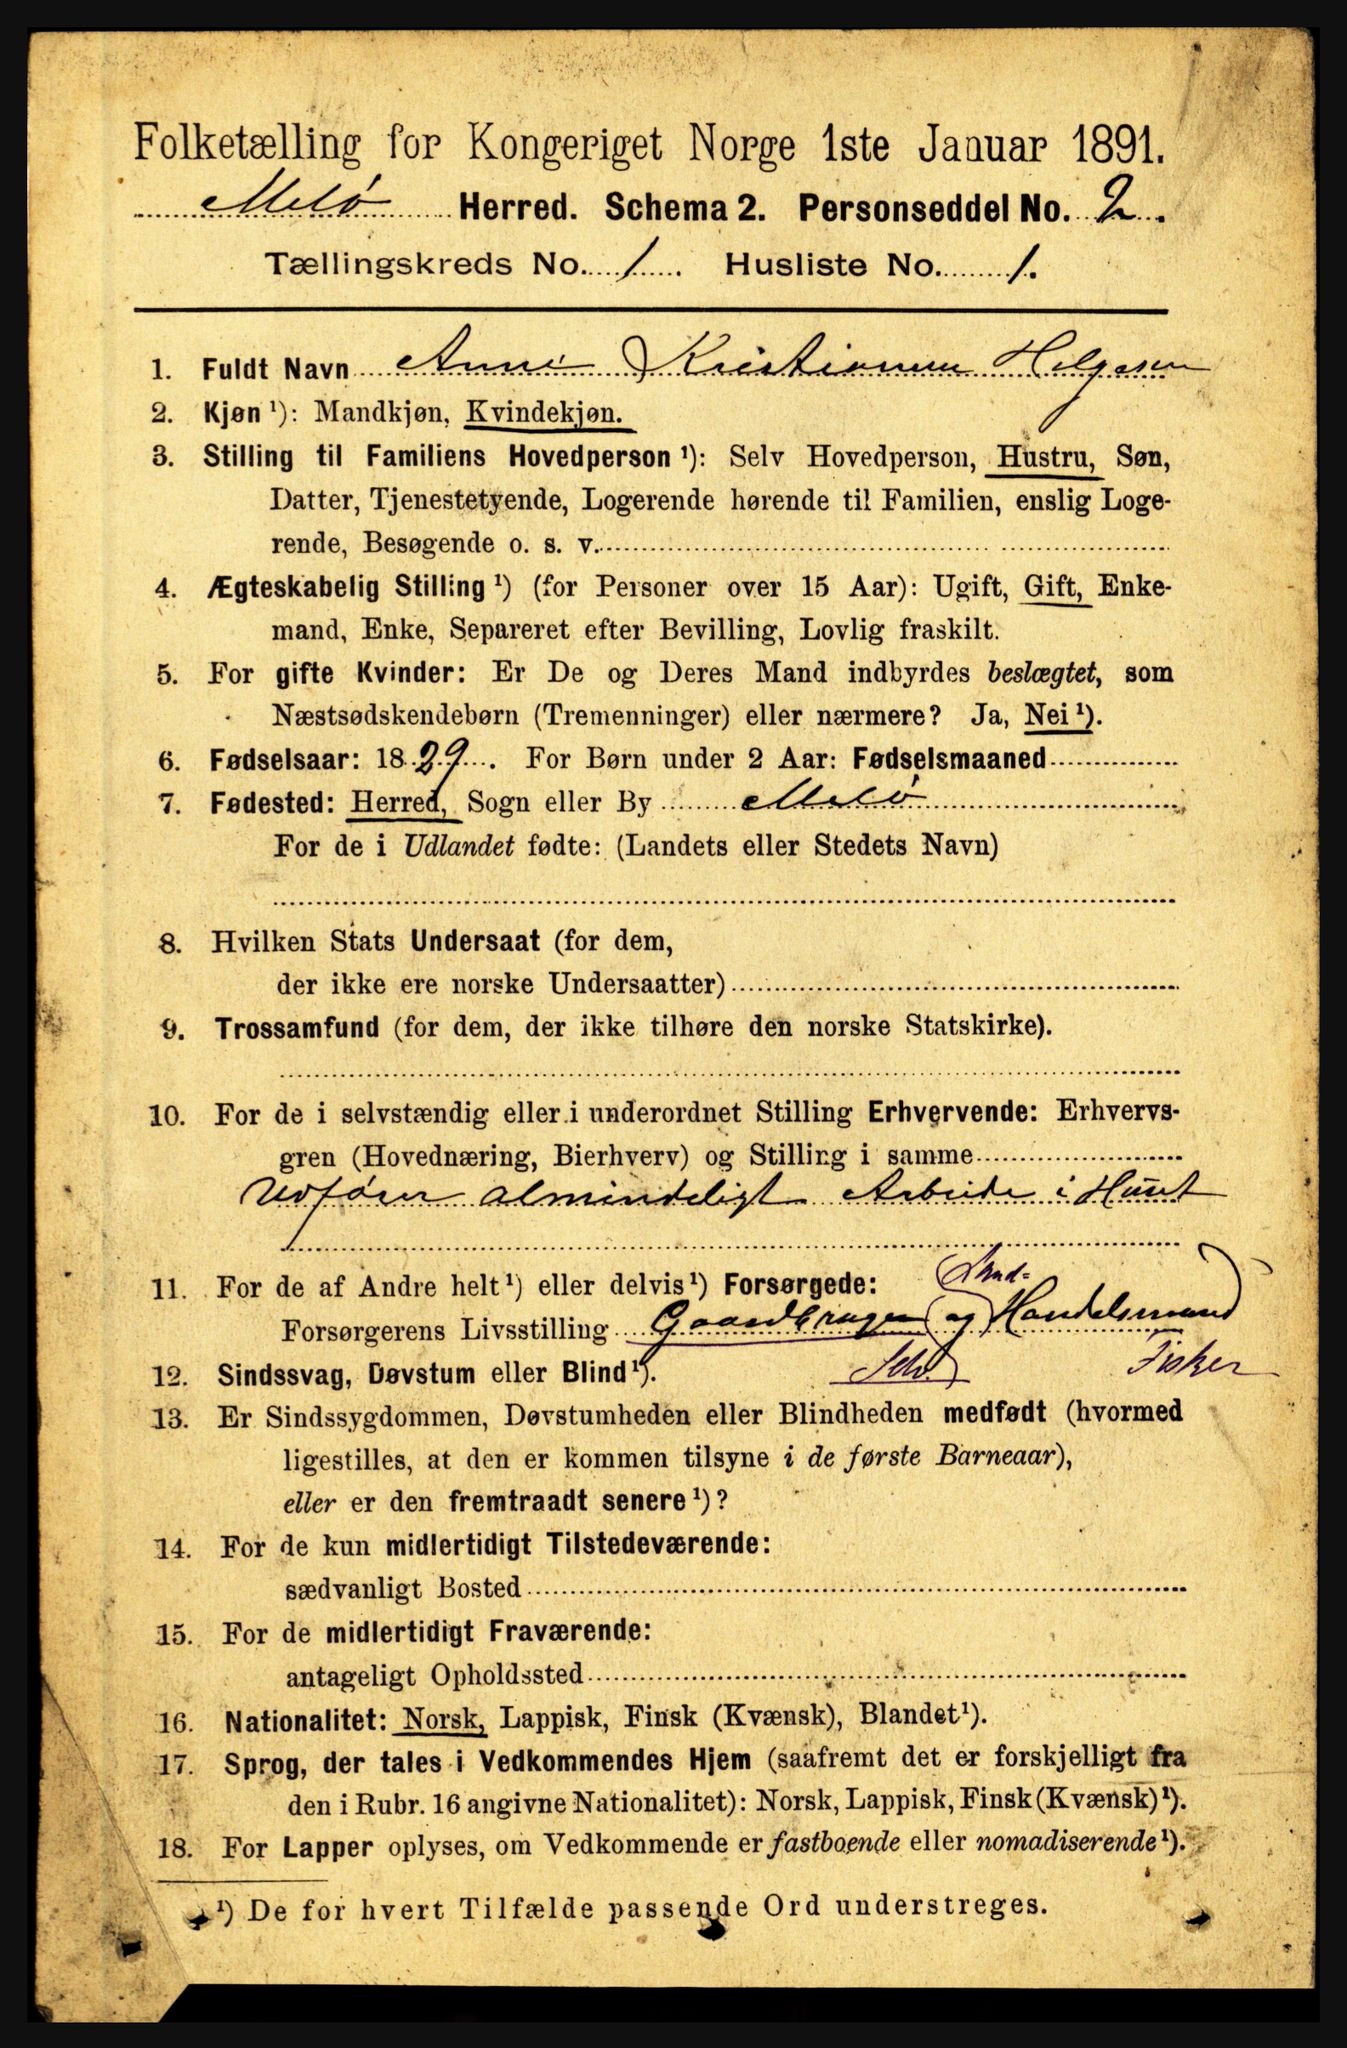 Folketælling for Kongeriget Norge 1ste Januar 1891.
Melø Herred. Schema 2. Personseddel No. 2.
Tællingskreds No. 1. Husliste No. 1.
1. Fuldt Navn Anne Kristiansen Helgesen
2. Kjøn ¹): Mandkjøn, Kvindekjøn.
3. Stilling til Familiens Hovedperson ¹): Selv Hovedperson, Hustru, Søn,
Datter, Tjenestetyende, Logerende hørende til Familien, enslig Loge-
rende, Besøgende o. s. v.
4. Ægteskabelig Stilling ¹) (for Personer over 15 Aar): Ugift, Gift, Enke-
mand, Enke, Separeret efter Bevilling, Lovlig fraskilt.
5. For gifte Kvinder: Er De og Deres Mand indbyrdes beslægtet, som
Næstsødskendebørn (Tremenninger) eller nærmere? Ja, Nei ¹).
6. Fødselsaar: 1829. For Børn under 2 Aar: Fødselsmaaned
7. Fødested: Herred, Sogn eller By Melø
For de i Udlandet fødte: (Landets eller Stedets Navn)
8. Hvilken Stats Undersaat (for dem,
der ikke ere norske Undersaatter)
9. Trossamfund (for dem, der ikke tilhøre den norske Statskirke).
10. For de i selvstændig eller i underordnet Stilling Erhvervende: Erhvervs-
gren (Hovednæring, Bierhverv) og Stilling i samme
Udfører almindeligt Arbeide i Huset
11. For de af Andre helt ¹) eller delvis ¹) Forsørgede:
Forsørgerens Livsstilling Gaardbruger og Handelsmand
12. Sindssvag, Døvstum eller Blind ¹). Selv. Fisker
13. Er Sindssygdommen, Døvstumheden eller Blindheden medfødt (hvormed
ligestilles, at den er kommen tilsyne i de første Barneaar),
eller er den fremtraadt senere ¹)?
14. For de kun midlertidigt Tilstedeværende:
sædvanligt Bosted
15. For de midlertidigt Fraværende:
antageligt Opholdssted
16. Nationalitet: Norsk, Lappisk, Finsk (Kvænsk), Blandet ¹).
17. Sprog, der tales i Vedkommendes Hjem (saafremt det er forskjelligt fra
den i Rubr. 16 angivne Nationalitet): Norsk, Lappisk, Finsk (Kvænsk) ¹).
18. For Lapper oplyses, om Vedkommende er fastboende eller nomadiserende ¹).
¹) De for hvert Tilfælde passende Ord understreges.